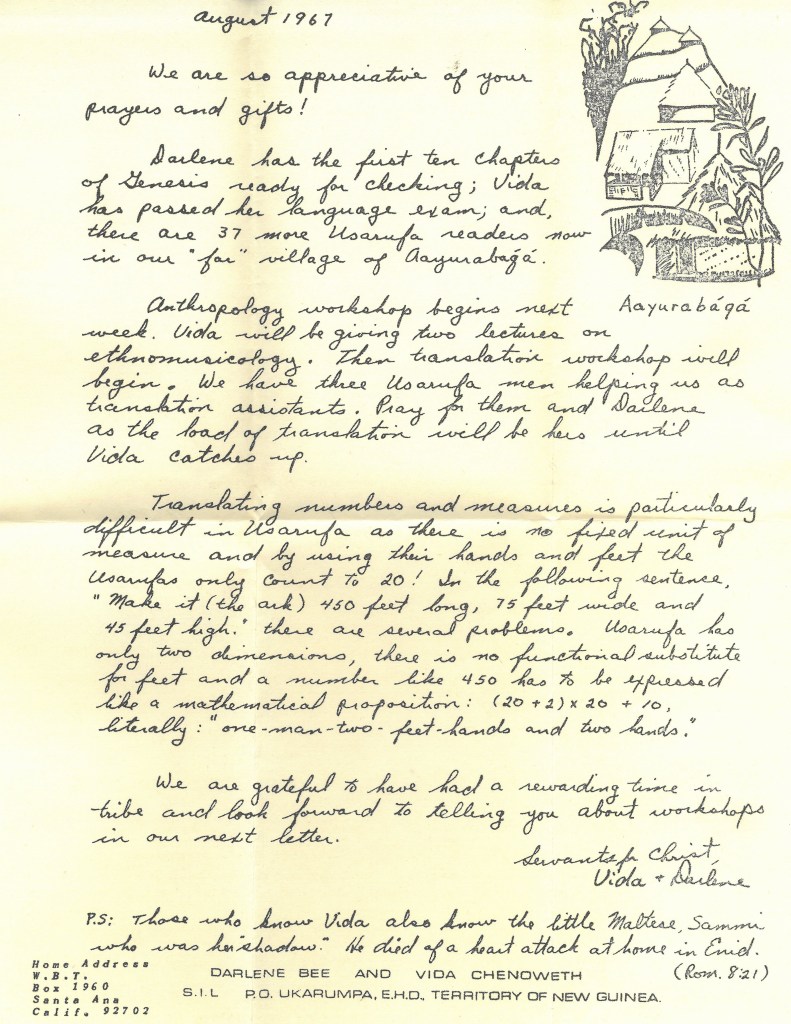 August 1967
We are so appreciative of your
prayers and gifts!
Darlene has the first ten chapters
of Genesis ready for checking; Vida
has passed her language exam; and,
there are 37 more Usarufa readers now
in our "far" village of Aayurabágá.
Aayurabágá
Anthropology workshop begins next
week. Vida will be giving two lectures on
ethnomusicology. Then translation workshop will
begin. We have three Usarufa men helping us as
translation assistants. Pray for them and Darlene
as the load of translation will be hers until
Vida catches up.
Translating numbers and measures is particularly
difficult in Usarufa as there is no fixed unit of
measure and by using their hands and feet the
Usarufas only count to 20! In the following sentence,
"Make it (the ark) 450 feet long, 75 feet wide and
45 feet high." there are several problems. Usarufa has
only two dimensions, there is no functional substitute
for feet and a number like 450 has to be expressed
like a mathematical proposition: (20 + 2) x 20 + 10,
literally: "one-man-two-feet-hands and two hands."
We are grateful to have had a rewarding time in
tribe and look forward to telling you about workshops
in our next letter.
Servants for Christ,
Vida + Darlene
P.S: Those who know Vida also know the little Maltese, Sammi
who was her "shadow." He died of a heart attack at home in Enid.
(Rom. 8:21)
Home Address
W.B.T.
Box 1960
Santa Ana
Calif. 92702
DARLENE BEE AND VIDA CHENOWETH
S.I.L P.O. UKARUMPA, E.H.D., TERRITORY OF NEW GUINEA.